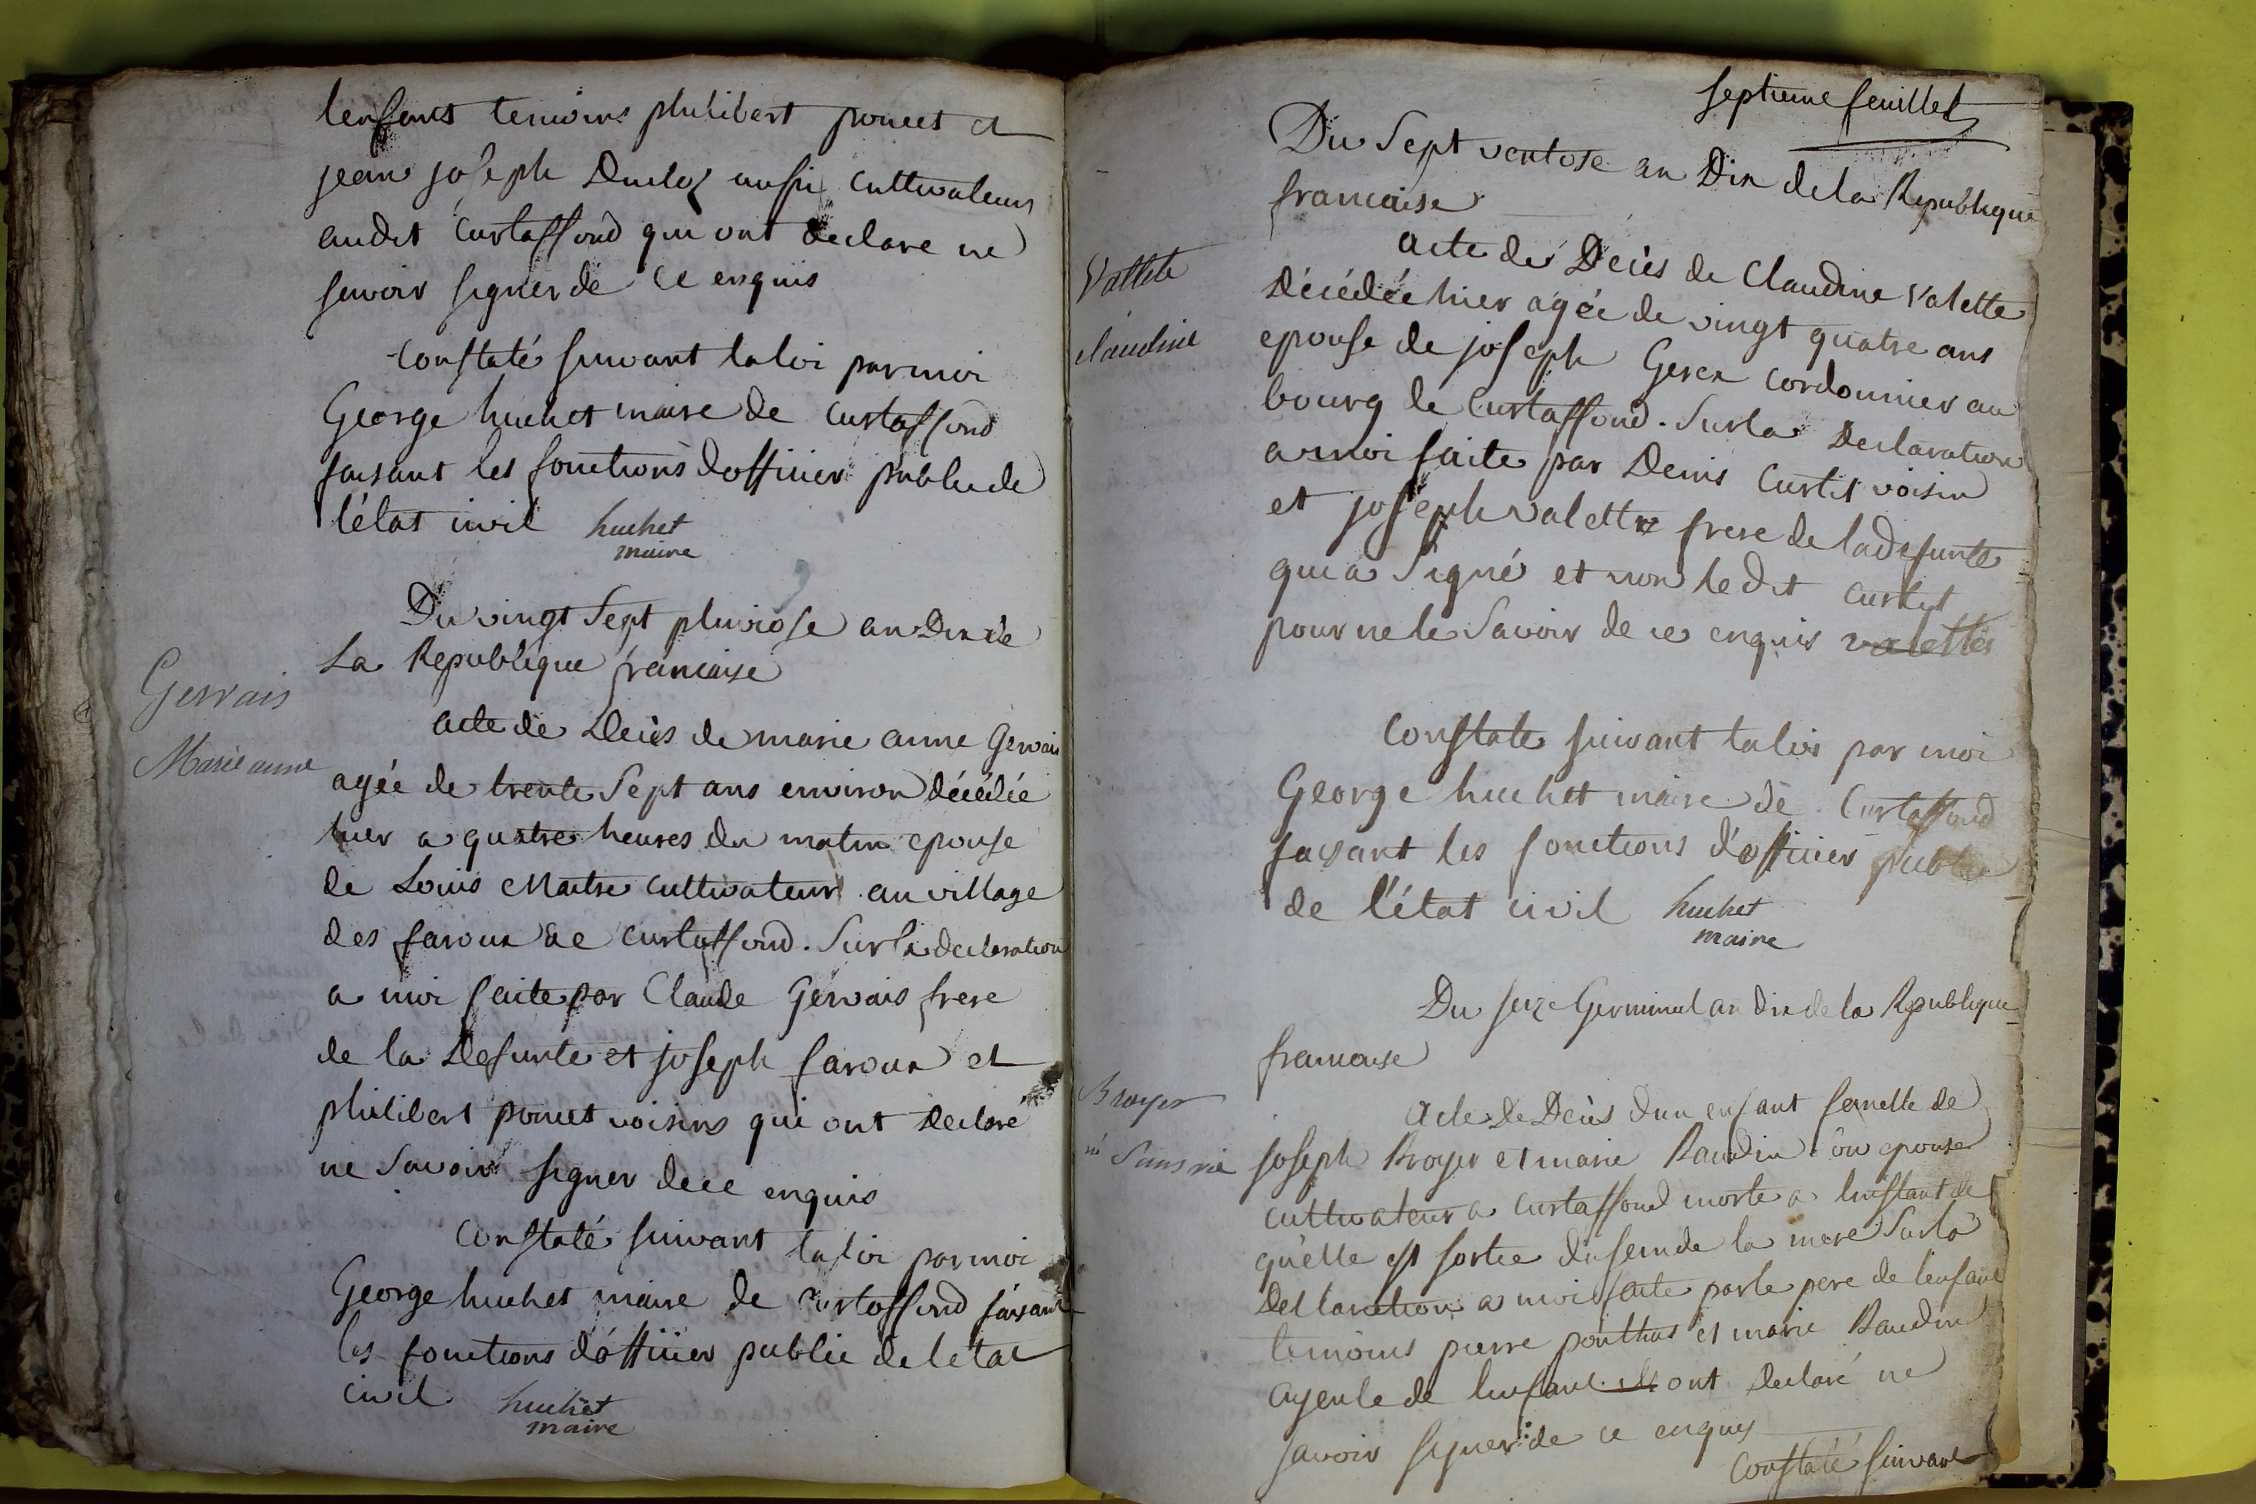 lenfant temoins philibert poncet et
jean joseph Ducloz aussi cultivateurs
audit Curtaffond qui ont declare ne
savoir signer de ce enquis
Constaté suivant la loi par moi
George huchet maire de Curtaffond
faisant les fonctions dofficier public de
l'état civil huchet
maire
Du vingt Sept pluviose an Dix de
La Republique francaise
Gervais
acte de Décès de marie anne Gervais
Marie anne
agée de trente Sept ans environ décédée
hier a quatre heures du matin epouse
de Louis Maitre cultivateur au village
des faroux de Curtaffond. Sur la declaration
a moi faite par Claude Gervais frere
de la Defunte et joseph faroux et
philibert poncet voisins qui ont Declaré
ne Savoir signer de ce enquis
Constaté suivant la loi par moi
George huchet maire de Curtaffond faisant
les fonctions d'officier public de letat
civil huchet
maire
septieme feuillet
Du Sept ventose an Dix de la Republique
francaise
Valette
claudine
acte de Décès de Claudine Valette
Décédée hier agée de vingt quatre ans
epouse de joseph Gerex cordonnier au
bourg de Curtaffond. Sur la Declaration
a moi faite par Denis Curtit voisin
et joseph valette frere de la defunte
qui a Signé et non le dit Curtit
pour ne le Savoir de ce enquis valette
Constate suivant la loi par moi
George huchet maire de Curtaffond
faisant les fonctions d'officier public
de l'état civil huchet
maire
Du seize Germinal an dix de la Republique
francaise
Broyer
né Sans vie
acte de Décès dun enfant femelle de
joseph Broyer et marie Baudin son epouse
cultivateur a Curtaffond morte a linstant de
qu'elle est sortie du sein de la mere Sur la
Declaration a moi faite par le pere de lenfant
temoins pierre ponthus et marie Baudin
ayeule de lenfant ils ont Declaré ne
savoir signer de ce enquis
Constaté suivant